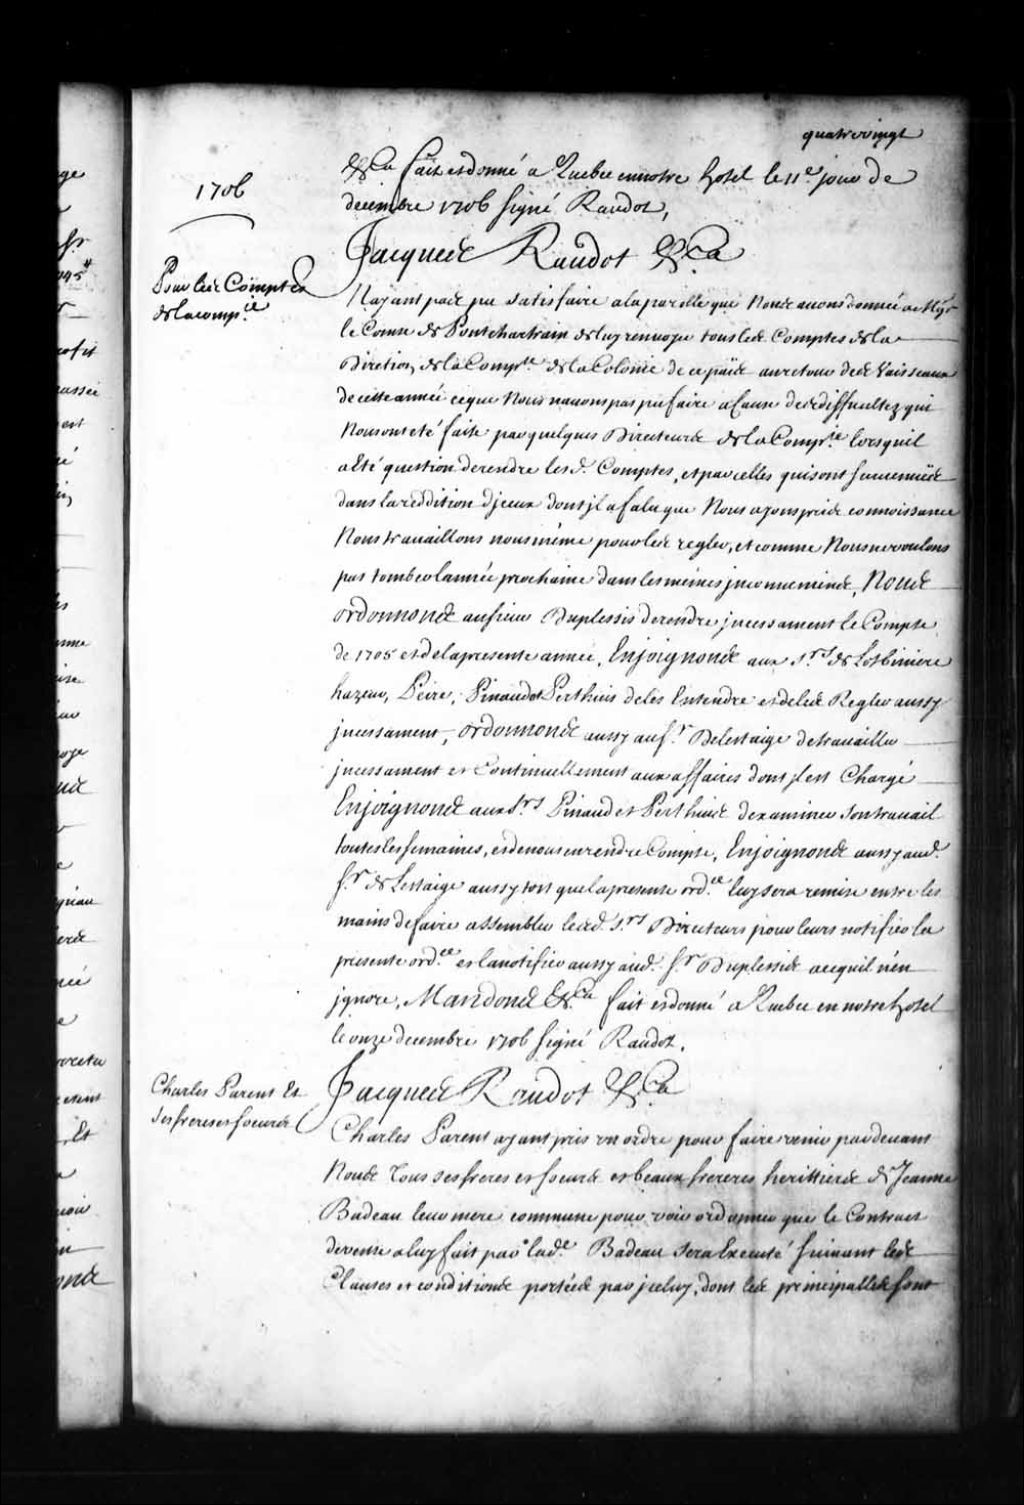 quatrevingt
1706
&ca fait et donné a Quebec en notre hotel le 11e jour de
decembre 1706 signé Raudot,
Jacques Raudot &ca
Pour les Comptes
de la compie
N'ayant pas pu satisfaire a la parolle que Nous avons donnée a Mgr
le Comte de Pontchartrain de luy renvoyer tous les Comptes de la
Direction de la Compie de la Colonie de ce païs au retour des Vaisseaux
de cette année ce que Nous n'avons pas pû faire a cause des difficultez qui
Nous ont eté faite par quelques Directeurs de la Compie lorsquil
a eté question de rendre lesd. Comptes, et par celles qui sont survenuës
dans la reddition d'jceux dont jl a falu que Nous ayons pris connoissance
Nous travaillons nous même pour les regler, et comme Nous ne voulons
pas tomber l'année prochaine dans les mêmes jnconveniens, Nous
ordonnons au sieur Duplessis de rendre jncessament le Compte
de 1705 et de la presente année, Enjoignons aux Srs de Lotbiniere
hazeur, Peire, Pinaud et Perthuis de les Entendre et de les Regler aussy
jncessament, ordonnons aussy au Sr Delestaige de travailler
jncessament et Continuellement aux affaires dont jl est Chargé
Enjoignons aux Srs Pinaud et Perthuis d'examiner son travail
toutes les semaines, et de nous en rendre Compte, Enjoignons aussy aud.
Sr de Lestaige aussytost que la presente ordce luy sera remise entre les
mains de faire assembler lesd. Srs Directeurs pour leurs notifier la
presente ordce et la notifier aussy aud. Sr Duplessis acequil n'en
jgnore, Mandons &ca fait et donné a Quebec en notre hotel
le onze decembre 1706 signé Raudot.
Jacques Raudot &ca
Charles Parent Et
ses freres et soeurs
Charles Parent ayant pris un ordre pour faire venir pardevant
Nous Tous ses freres et soeurs et beaux freres herittiers de Jeanne
Badeau leur mere commune pour voir ordonner que le Contract
de vente a luy fait par lade Badeau sera Executé suivant les
Clauses et conditions portées par jceluy, dont les principalles sont